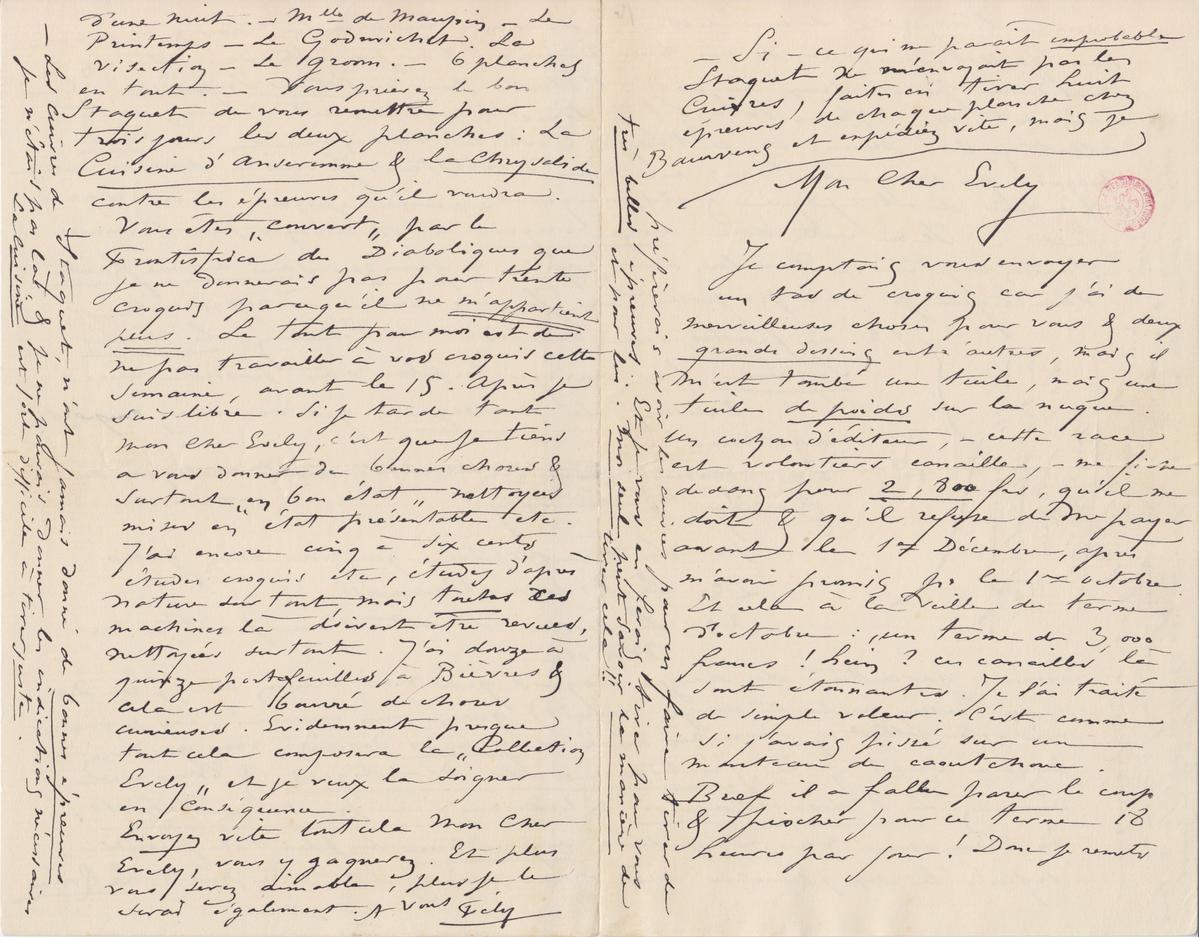 — Si — ce qui me parait improbable
Staquet ne m'envoyait pas les
Cuivres, faites en tirer huit
épreuves de chaque planche chez
et expédiez vite, mais je
préférerais avoir les cuivres pour en faire tirer de
très belles épreuves. Et je vous en ferais tirer pour vous
et pour lui. Moi seul peut savoir la manière de
tirer cela !!
Mon Cher Evely
Je comptais vous envoyer
un tas de croquis car j'ai de
merveilleuses choses pour vous & deux
grands dessins entr'autres, mais il
m'est tombé une tuile, mais une
tuile de poids sur la nuque.
Un cochon d'éditeur, — cette race
est volontiers canaille, — me
dedans pour 2,800 frs, qu'il me
doit & qu'il refuse de me payer
avant le 1er Décembre, après
m'avoir promis pr le 1er octobre
Et cela à la veille du terme
d'octobre : un terme de 3000
francs ! hein ? ces canailles là
sont étonnantes. Je l'ai traité
de simple voleur. C'est comme
si j'avais pissé sur un
manteau de caoutchouc.
Bref il a fallu parer le coup
& piocher pour ce terme 18
heures par jour ! Donc je remets
d'une nuit. — Mlle de Maupin — Le
Printemps — Le Godmichet. La
visection — Le groom. — 6 planches
en tout. — Vous prierez le bon
Staquet de vous remettre pour
trois jours les deux planches : La
Cuisine d'Anseremme & la Chrysalide
contre les épreuves qu'il voudra.
Vous êtes „couvert„ par le
Frontispice des Diaboliques que
je ne donnerais pas pour trente
croquis parcequ'il ne m'appartient
plus. Le tout pour moi est de
ne pas travailler à vos croquis cette
semaine, avant le 15. Après je
suis libre. Si je tarde tant
mon cher Evely, c'est que je tiens
a vous donner de bonnes choses &
surtout „en bon état„ nettoyées
mises en „état présentable etc.
J'ai encore cinq à six cents
études croquis etc, études d'après
nature surtout, mais toutes ces
machines là doivent être revues,
nettoyées surtout. J'ai douze à
quinze portefeuilles à Bièvres &
cela est bourré de choses
curieuses. Evidemment presque
tout cela composera la „Collection
Evely„ et je veux la soigner
en conséquence.
Envoyez vite tout cela mon cher
Evely, vous y gagnerez. Et plus
vous serez aimable, plus je le
serai également. A vous Fély
— Les cuivres de Staquet n'ont jamais donné de bonnes épreuves
je n'étais pas là & je ne pouvais donner les indications nécessaires
La cuisine est fort difficile à tirer juste.